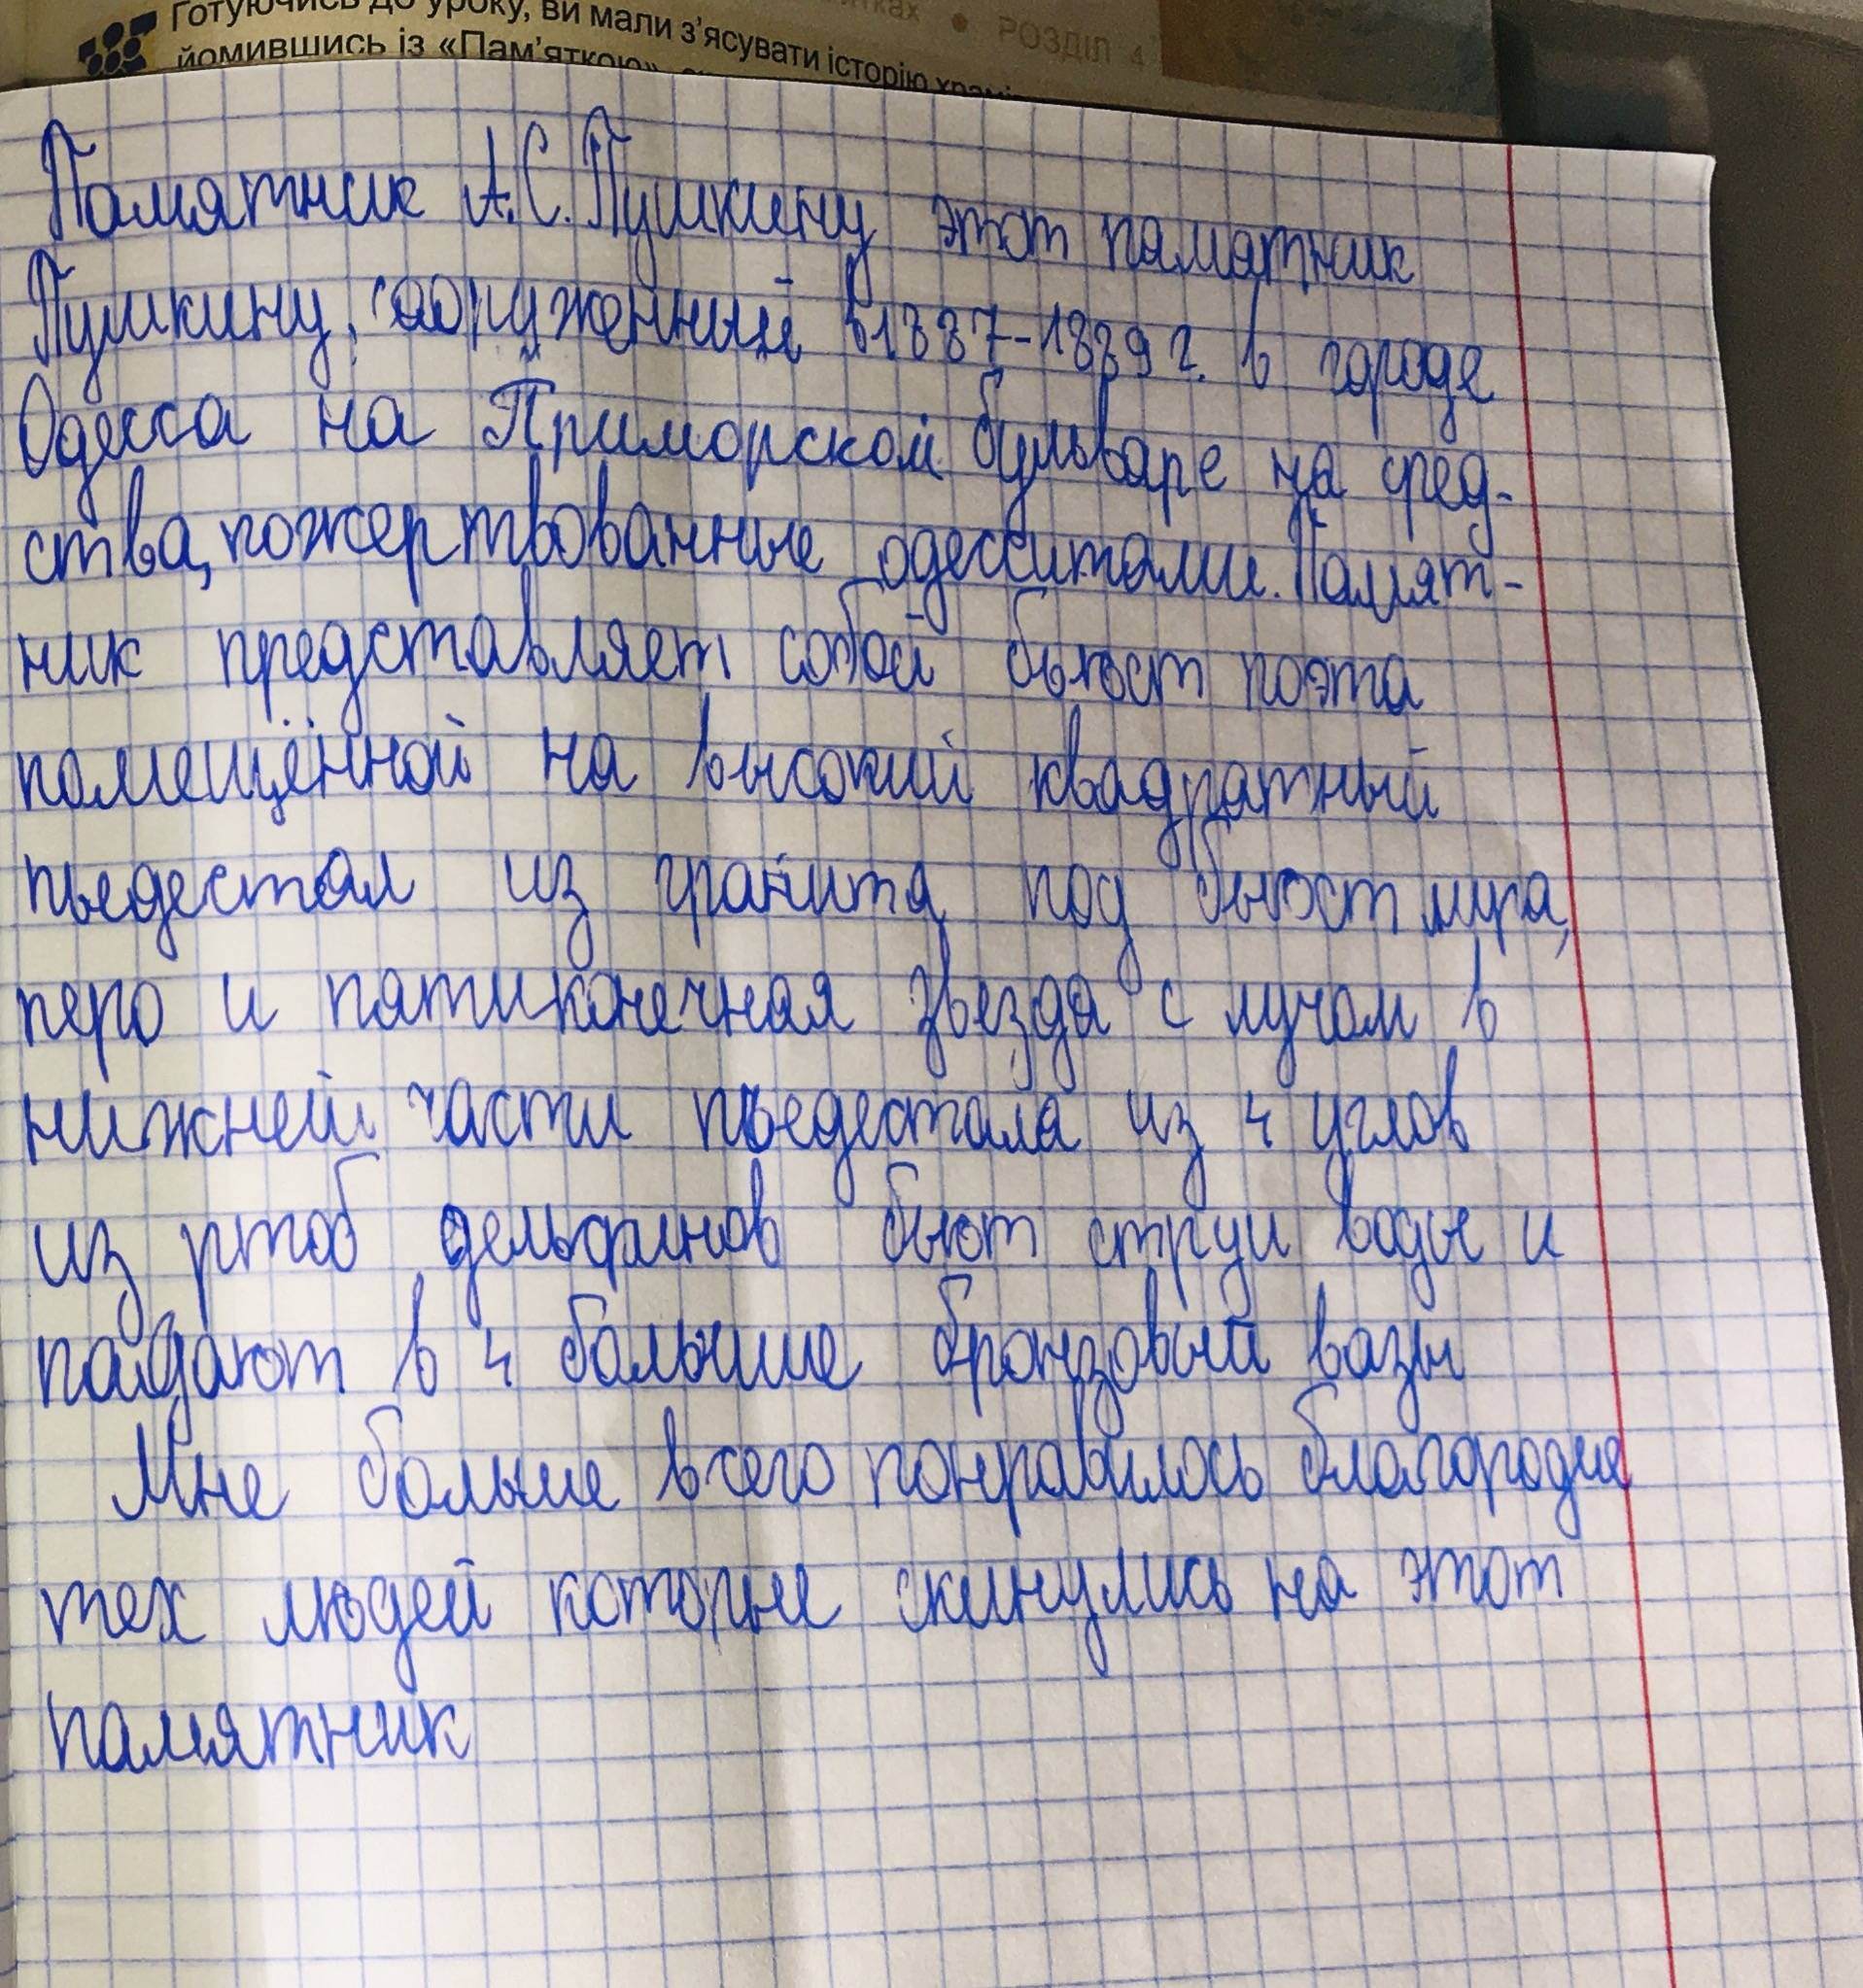 Готуючись до уроку, ви мали з’ясувати історію храмів
йомившись із «Пам’яткою»
РОЗДІЛ 4
Памятник А.С. Пушкину этот памятник
Пушкину, сооруженный в 1887-1889 г. в городе
Одесса на Приморском бульваре на сред-
ства, пожертвованные одесситами. Памят-
ник представляет собой бьюст поэта
помещённой на высокий квадратный
пьедестал из гранита под бьюст лира,
перо и пятиконечная звезда с лучом в
нижней части пьедестала из 4 углов
из ртов дельфинов бьют струи воды и
падают в 4 большие бронзовый вазы
Мне больше всего понравилось благородие
тех людей которые скинулись на этот
памятник